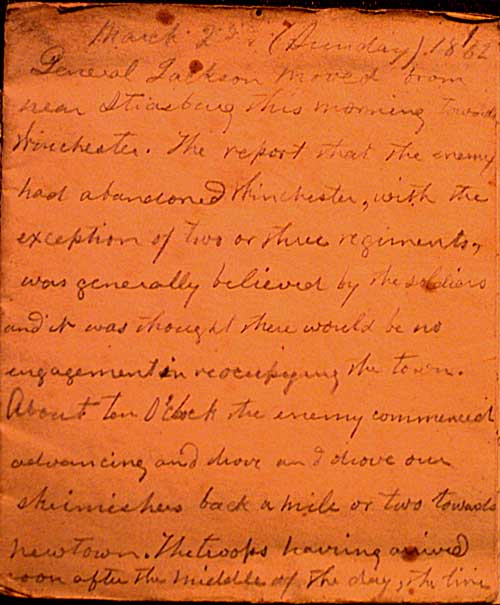 March 23d (Sunday) 1862
General Jackson moved from
near Strasburg this morning towards
Winchester. The report that the enemy
had abandoned Winchester, with the
exception of two or three regiments,
was generally believed by the soldiers
and it was thought there would be no
engagement in reocupying the town.
About ten O'clock the enemy commenced
advancing and drove and drove our
skirmishers back a mile or two towards
newtown. The troops having arrived
soon after the middle of the day, the line